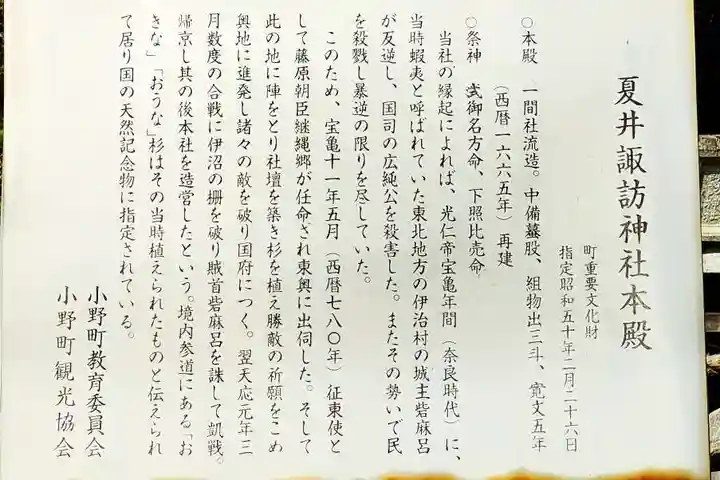 夏井諏訪神社本殿
町重要文化財
指定昭和五十年二月二十六日
○本殿　一間社流造。中備蟇股、組物出三斗、寛文五年
（西暦一六六五年）再建
○祭神　武御名方命、下照比売命
当社の縁起によれば、光仁帝宝亀年間（奈良時代）に、
当時蝦夷と呼ばれていた東北地方の伊治村の城主砦麻呂
が反逆し、国司の広純公を殺害した。またその勢いで民
を殺戮し暴逆の限りを尽していた。
このため、宝亀十一年五月（西暦七八〇年）征東使と
して藤原朝臣継縄郷が任命され東奥に出伺した。そして
此の地に陣をとり社壇を築き杉を植え勝敵の祈願をこめ
奥地に進発し諸々の敵を破り国府につく。翌天応元年三
月数度の合戦に伊沼の柵を破り賊首砦麻呂を誅して凱戦。
帰京し其の後本社を造営したという。境内参道にある「お
きな」「おうな」杉はその当時植えられたものと伝えられ
て居り国の天然記念物に指定されている。
小野町教育委員会
小野町観光協会